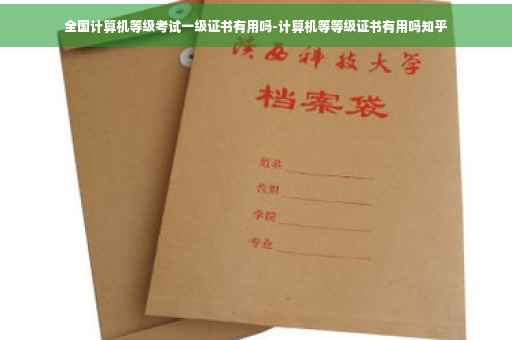 全国计算机等级考试一级证书有用吗-计算机等等级证书有用吗知乎
陕西科技大学
档案袋
姓名
学院
专业